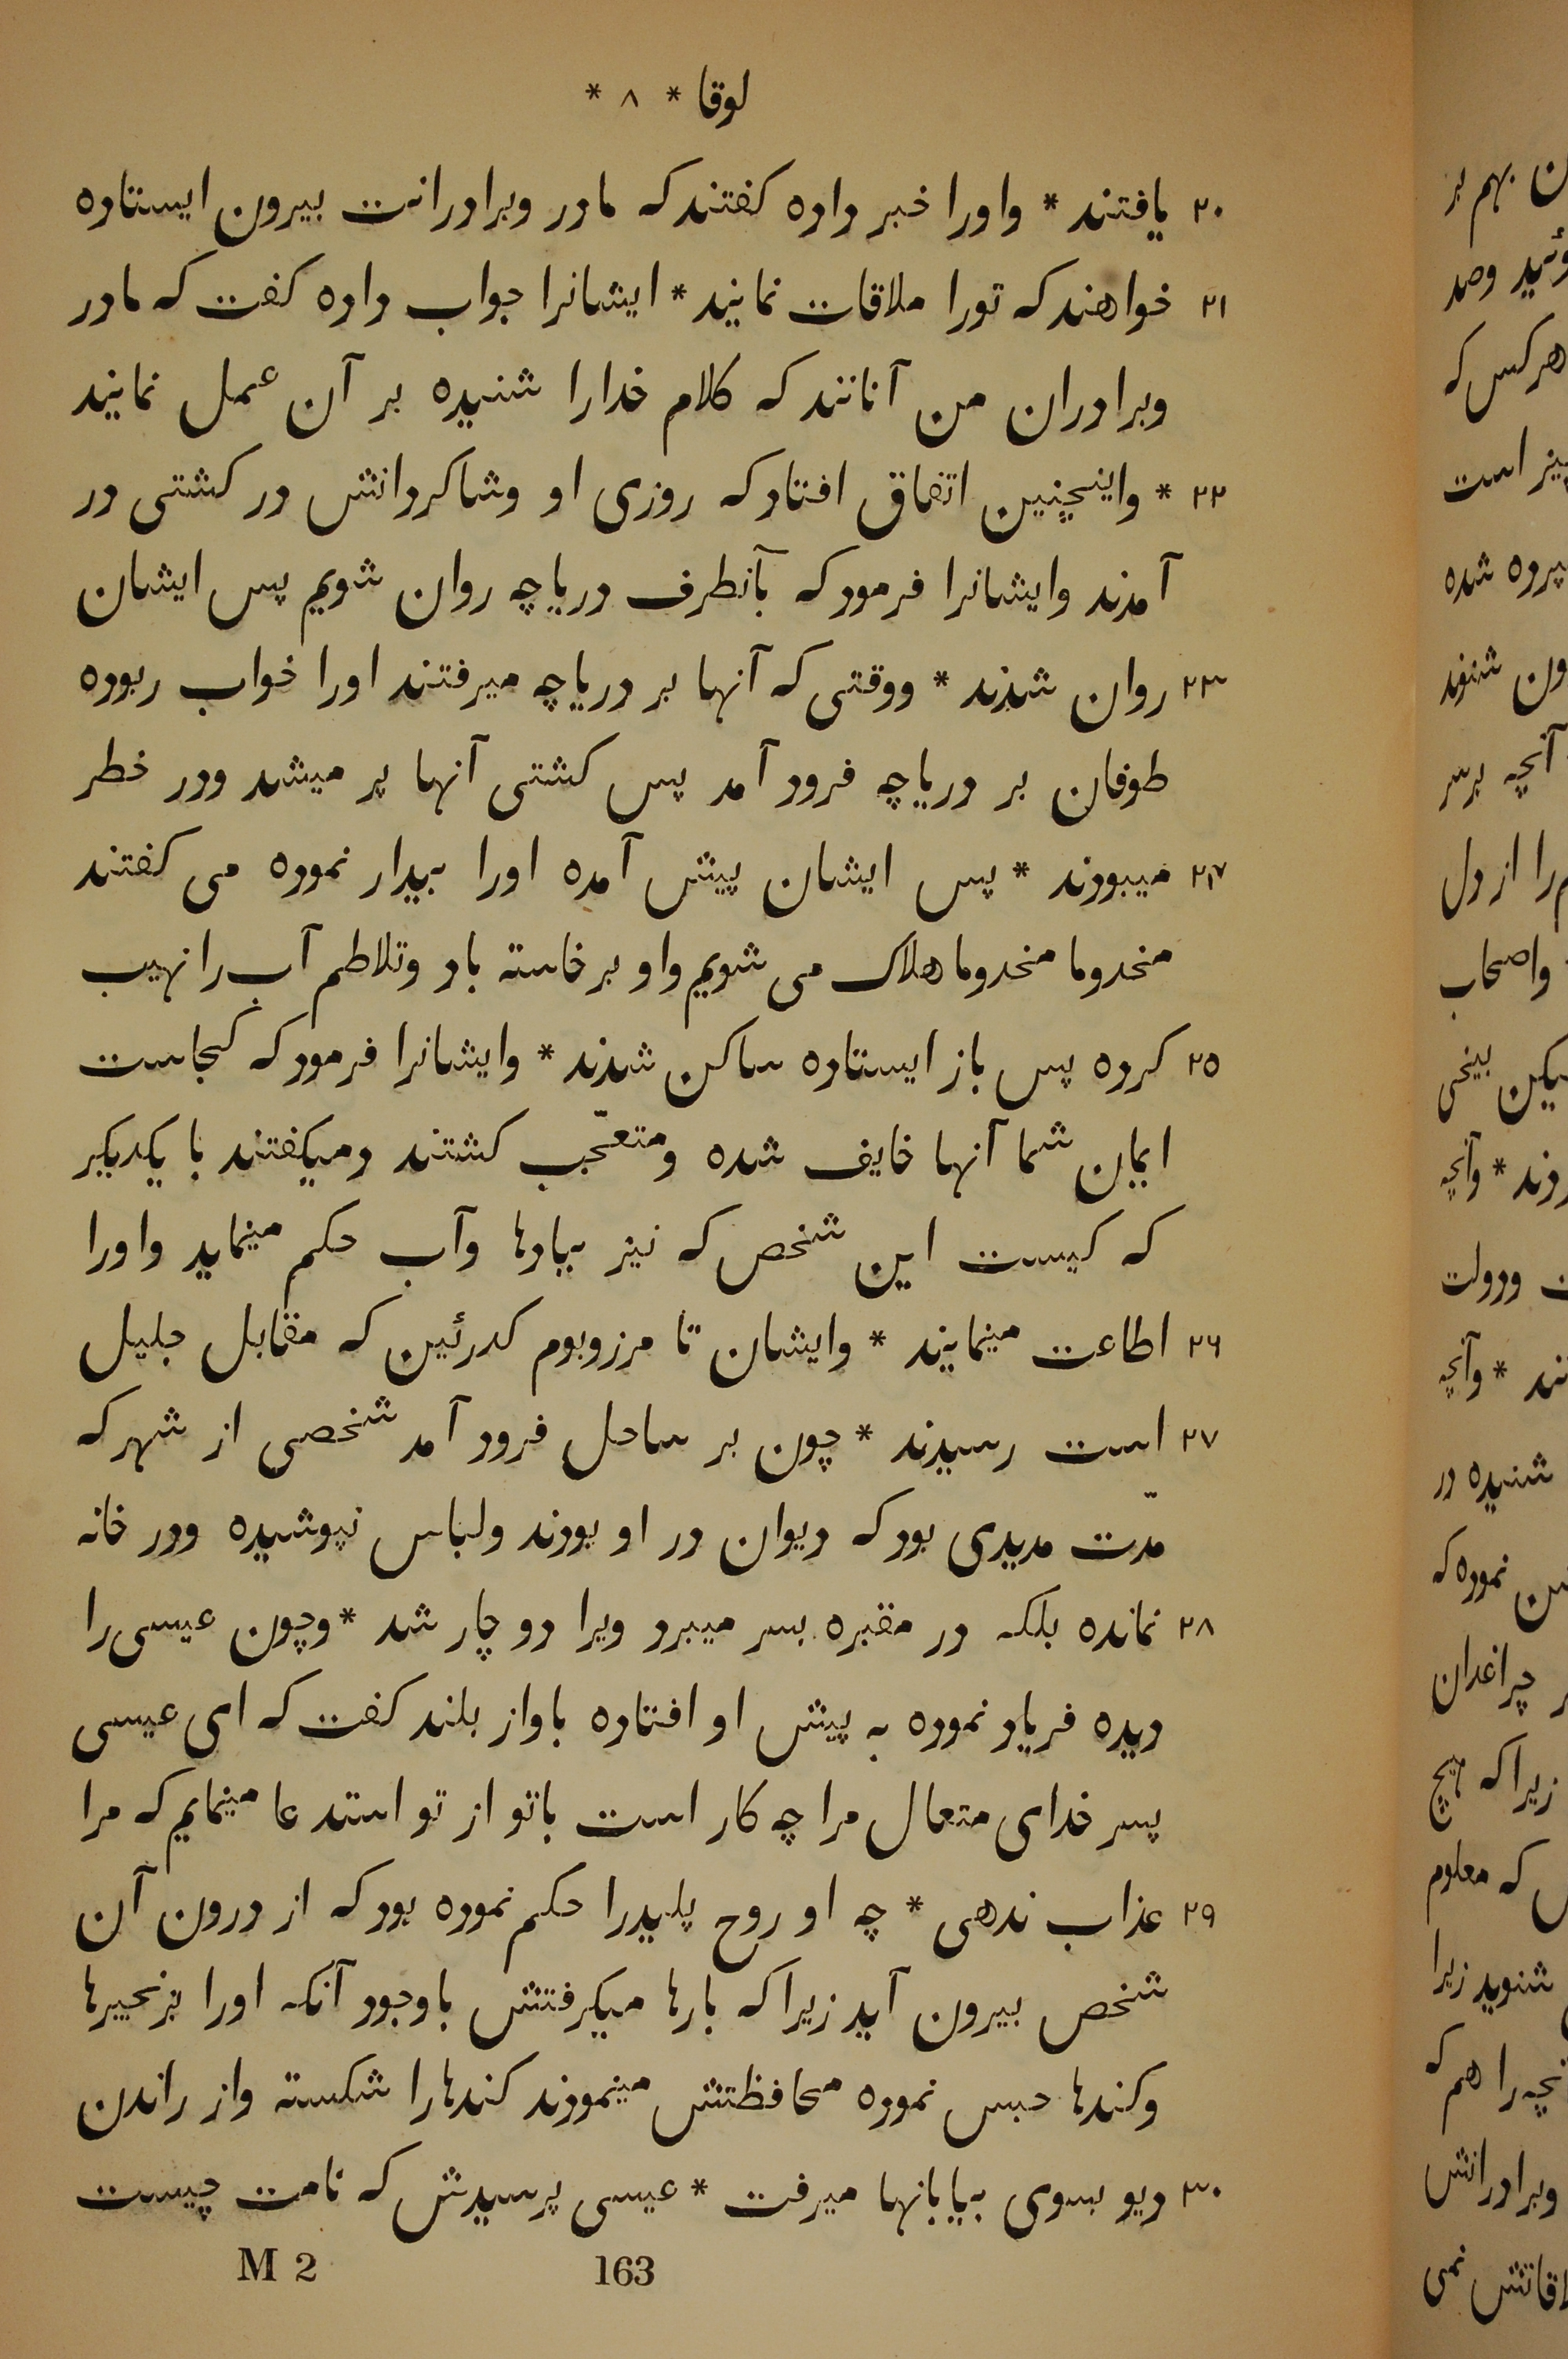 لوقا * ۸ *
۲۰ یافتند * واورا خبر داده کفتند که مادر وبرادرانت بیرون ایستاده
۲۱ خواهند که تورا ملاقات نمایند * ایشانرا جواب داده کفت که مادر
وبرادران من آنانند که کلام خدارا شنیده بر آن عمل نمایند
۲۲ * واینچنین اتفاق افتاد که روزی او وشاکردانش در کشتی در
آمدند وایشانرا فرمود که بآنطرف دریاچه روان شویم پس ایشان
۲۳ روان شدند * ووقتی که آنها بر دریاچه میرفتند اورا خواب ربوده
طوفان بر دریاچه فرود آمد پس کشتی آنها پر میشد ودر خطر
۲۴ میبودند * پس ایشان پیش آمده اورا بیدار نموده می کفتند
مخدوما مخدوما هلاک می شویم واو برخاسته باد وتلاطم آب را نهیب
۲۵ کرده پس باز ایستاده ساکن شدند * وایشانرا فرمود که کجاست
ایمان شما آنها خایف شده ومتعجّب کشتند ومیکفتند با یکدیکر
که کیست این شخص که نیز ببادها وآب حکم مینماید واورا
۲۶ اطاعت مینمایند * وایشان تا مرزوبوم کدرئین که مقابل جلیل
۲۷ است رسیدند * چون بر ساحل فرود آمد شخصی از شهر که
مدّت مدیدی بود که دیوان در او بودند ولباس نپوشیده ودر خانه
۲۸ نمانده بلکه در مقبره بسر میبرد ویرا دو چار شد * وچون عیسی را
دیده فریاد نموده به پیش او افتاده باواز بلند کفت که ای عیسی
پسر خدای متعال مرا چه کار است باتو از تو استدعا مینمایم که مرا
۲۹ عذاب ندهی * چه او روح پلیدرا حکم نموده بود که از درون آن
شخص بیرون آید زیرا که بارها میکرفتش باوجود آنکه اورا بزنجیرها
وکندها حبس نموده محافظتش مینمودند کندهارا شکسته واز راندن
۳۰ دیو بسوی بیابانها میرفت * عیسی پرسیدش که نامت چیست
163 M 2
بهم بر
وصد
هر کس که
است
شده
شنوند
آنچه برسر
را از دل
واصحاب
بیخی
* وآنچه
ودولت
* وآنچه
شنیده در
نموده که
چراغدان
زیرا که هیچ
که معلوم
شنوید زیرا
را هم که
وبرادرانش
نمی